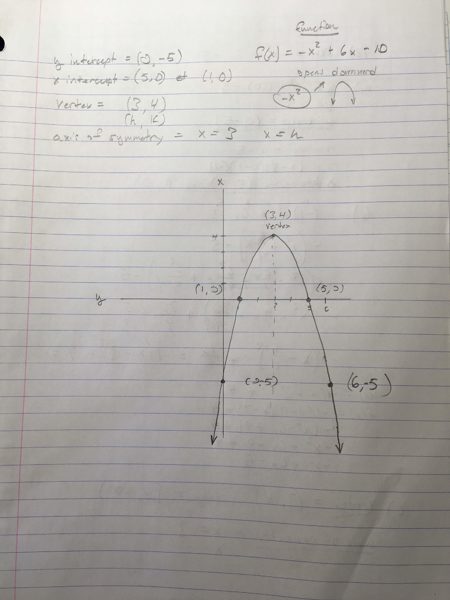 Function
f(x) = -x² + 6x - 10
y intercept = (0, -5)
x intercept = (5,0) et (1,0)
opens downward
-x²
vertex = (3,4)
(h, k)
axis of symmetry = x = 3 x = h
x
(3,4)
vertex
4
(1,0)
(5,0)
y
5 6
(0,-5)
(6,-5)